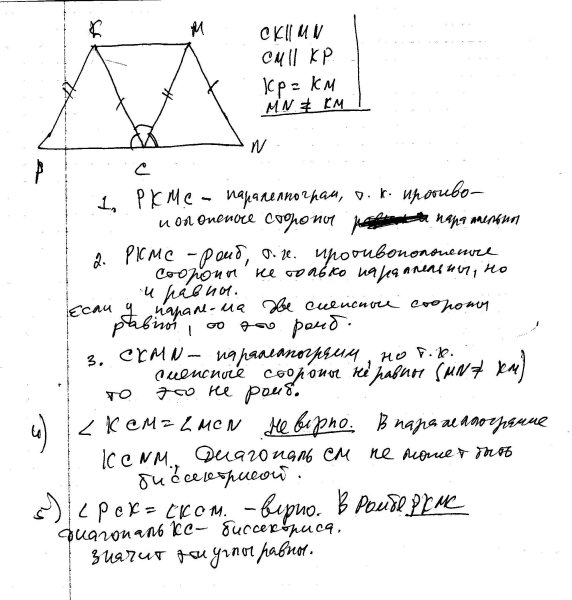 К М
Р С N
СК || MN
СМ || КР
КР = КМ
MN ≠ КМ
1. РКМС – паралелограм, т. к. противо-
положные стороны параллельны
2. РКМС – ромб, т. к. противоположные
стороны не только параллельны, но
и равны.
Если у парал-ма две смежные стороны
равны, то это ромб.
3. СКMN – паралелограмм, но т. к.
смежные стороны не равны (MN ≠ КМ)
то это не ромб.
4) ∠ КСМ = ∠ МСN не вірно. В параллелограмме
КСNM, диагональ СМ не может быть
биссектрисой.
5) ∠ РСК = ∠КСМ. – вірно. В Ромбе РКМС
диагональ КС – биссектриса.
значит эти углы равны.